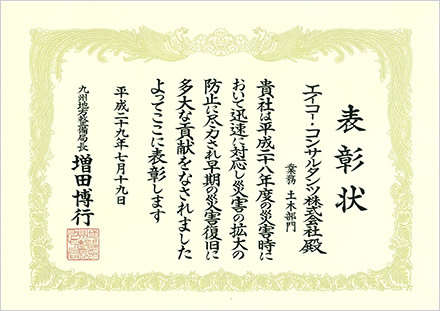 表彰状
エイコー・コンサルタンツ株式会社殿
業務 土木部門
貴社は平成二十八年度の災害時に
おいて迅速に対応し災害の拡大の
防止に尽力され早期の災害復旧に
多大な貢献をなされました
よってここに表彰します
平成二十九年七月十九日
九州地方整備局長 増田博行